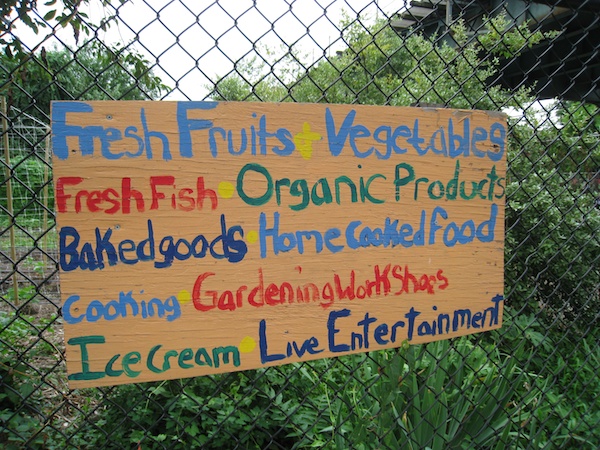 Fresh Fruits + Vegetables
Fresh Fish • Organic Products
Baked goods • Home Cooked Food
Cooking • Gardening WorkShops
Ice Cream • Live Entertainment